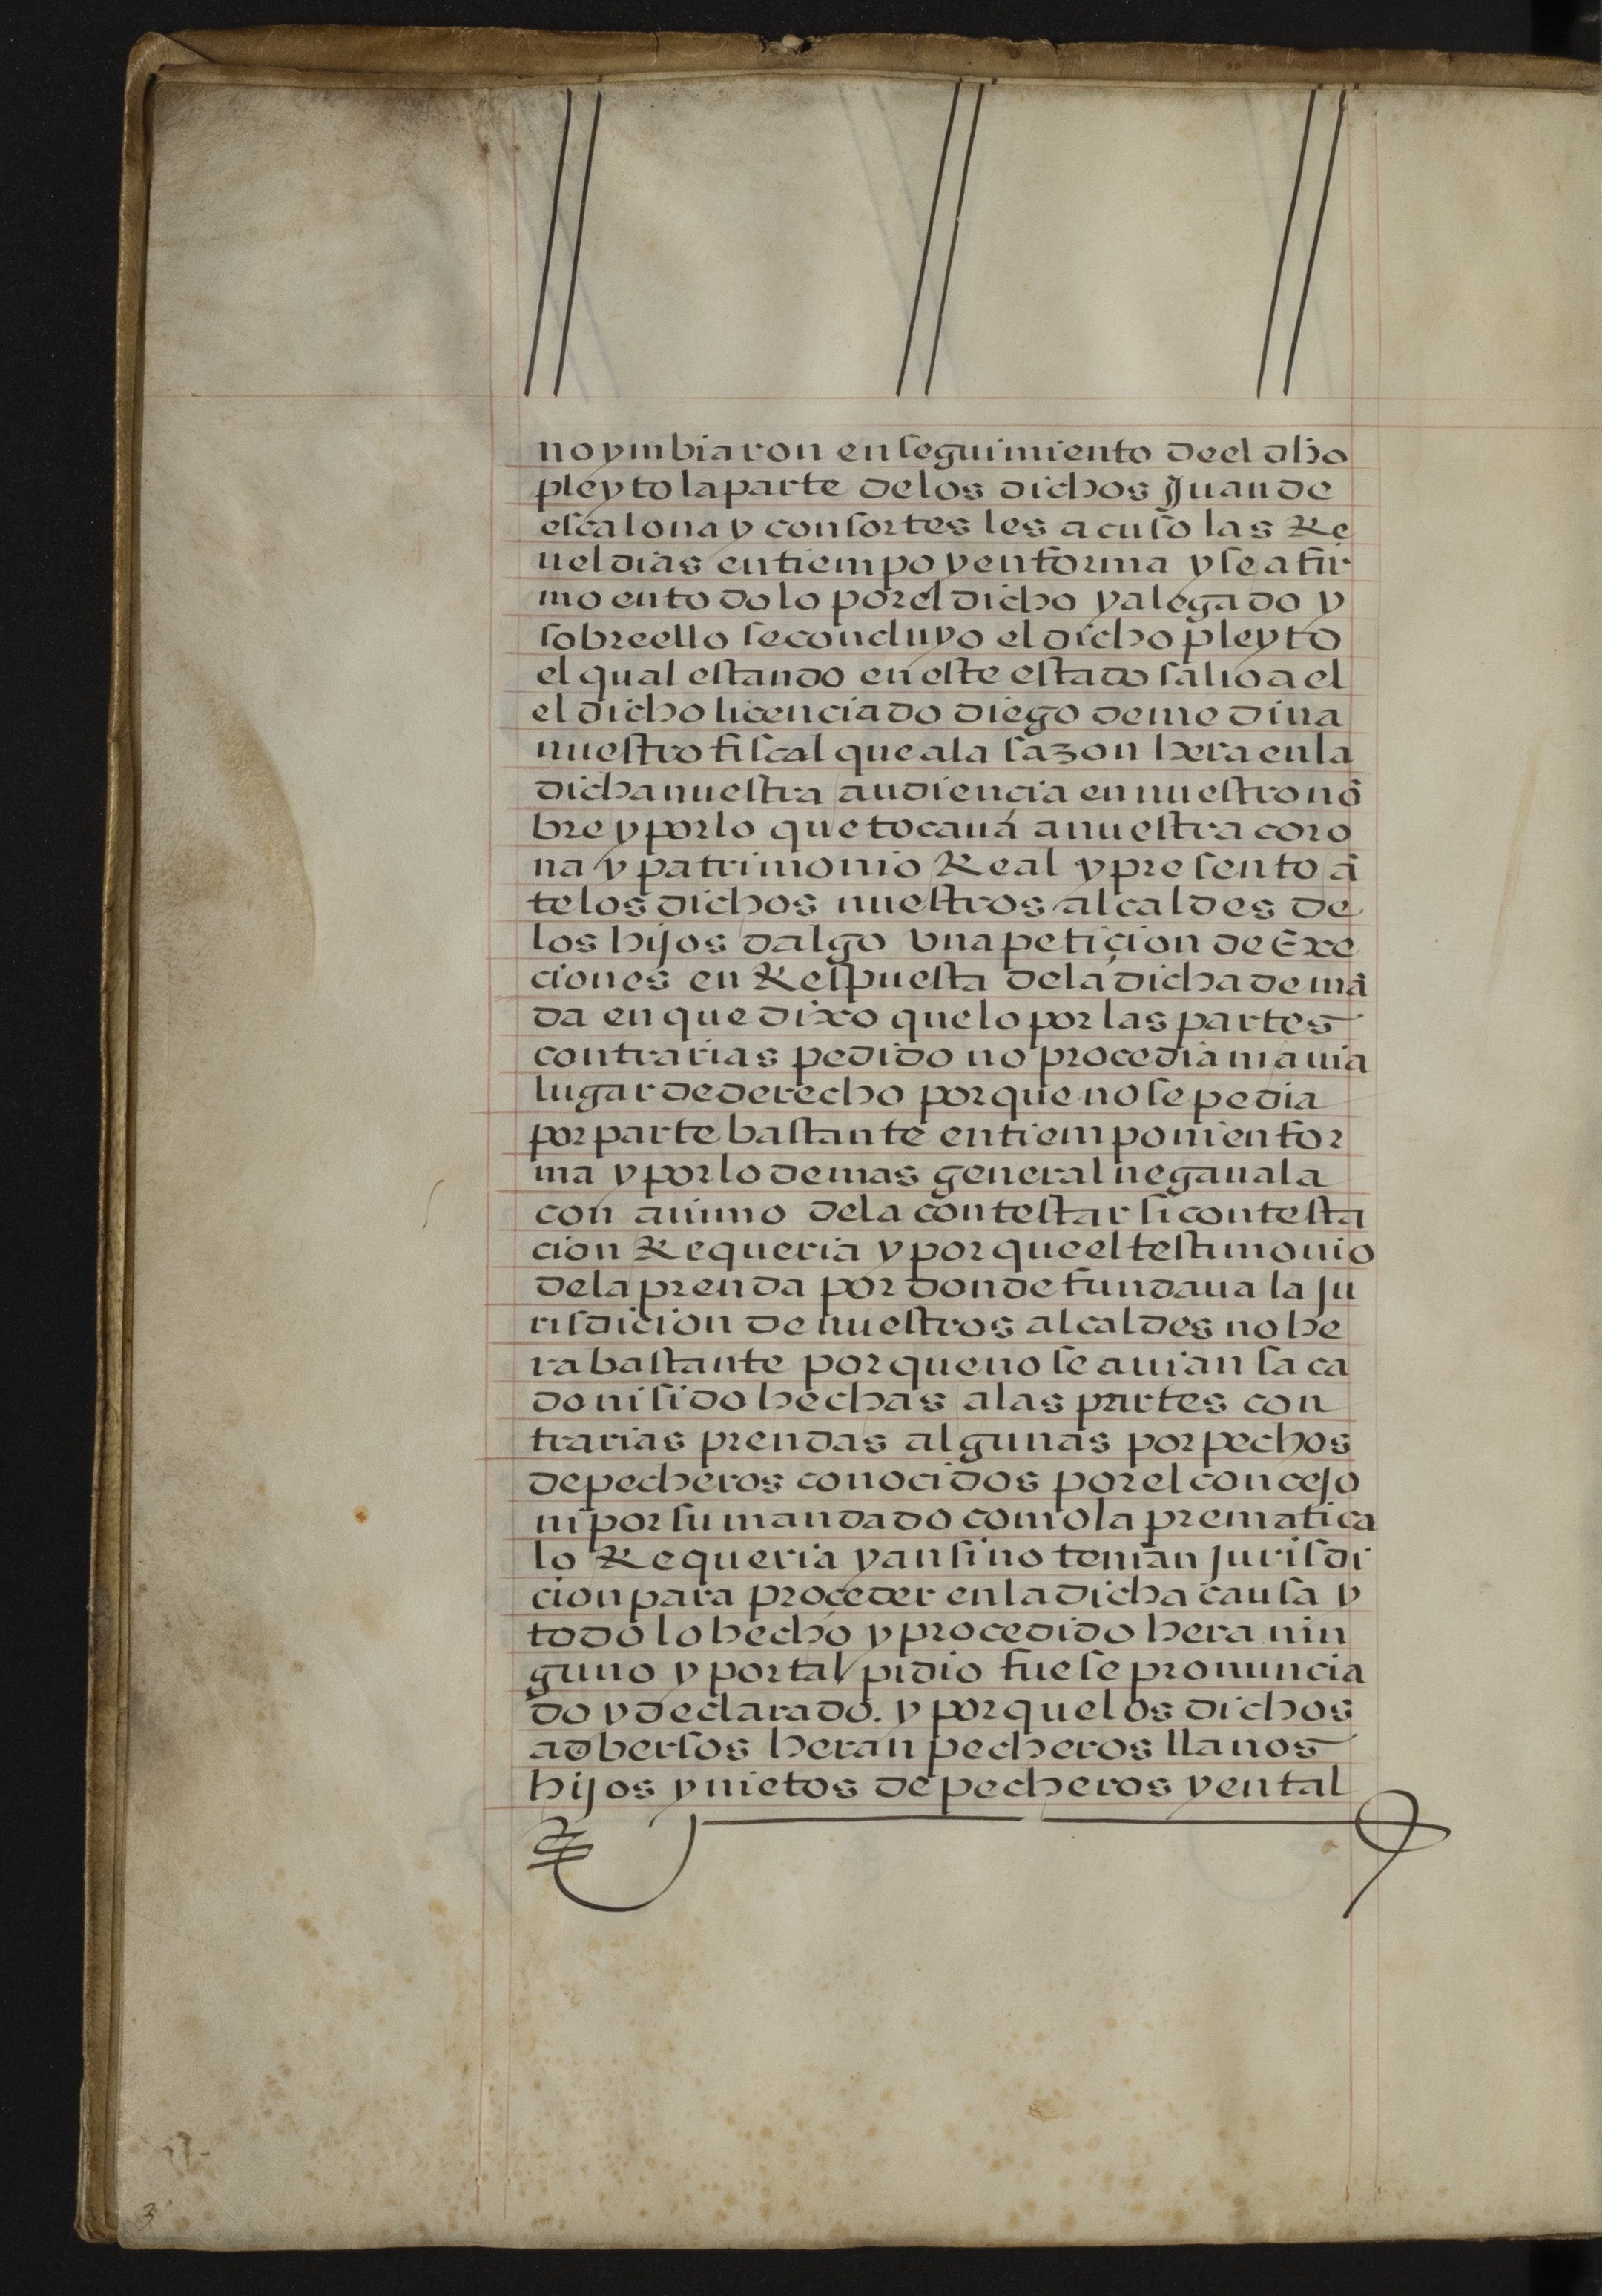 no ymbiaron en seguimiento de el dho
pleyto la parte de los dichos Juan de
escalona y consortes les acuso las Re
ueldias en tiempo y en forma y se afir
mo en todo lo por el dicho y alegado y
sobre ello se concluyo el dicho pleyto
el qual estando en este estado salio a el
el dicho licenciado diego de medina
nuestro fiscal que a la sazon hera en la
dicha nuestra audiençia en nuestro nõ
bre y por lo que tocaua a nuestra coro
na y patrimonio Real y presento ã
te los dichos nuestros alcaldes de
los hijos dalgo vna petiçion de Exe
ciones en Respuesta de la dicha demã
da en que dixo que lo por las partes
contrarias pedido no procedia ni auia
lugar de derecho porque no se pedia
por parte bastante en tiempo ni en for
ma y por lo demas general negauala
con animo de la contestar si contesta
cion Requeria y porque el testimonio
de la prenda por donde fundaua la Ju
risdicion de nuestros alcaldes no he
ra bastante porque no se auian saca
do ni sido hechas a las partes con
trarias prendas algunas por pechos
de pecheros conocidos por el concejo
ni por su mandado como la prematica
lo Requeria y ansi no tenian Jurisdi
cion para proçeder en la dicha causa y
todo lo hecho y procedido hera nin
guno y por tal pidio fuese pronuncia
do y declarado. y porque los dichos
adbersos heran pecheros llanos
hijos y nietos de pecheros y en tal
3